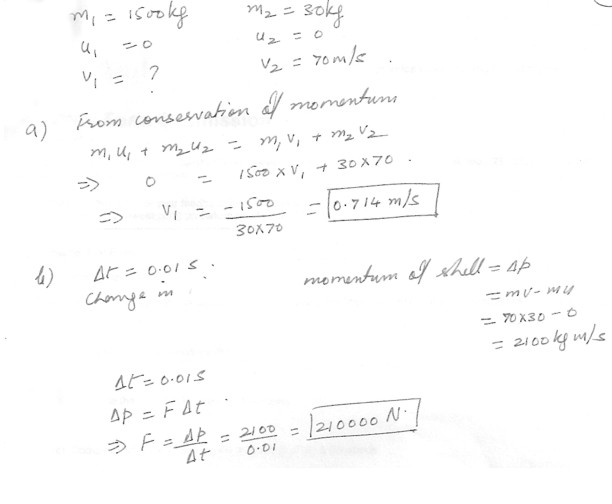 m₁ = 1500kg m₂ = 30kg
u₁ = 0 u₂ = 0
v₁ = ? v₂ = 70m/s .
a) From conservation of momentum
m₁u₁ + m₂u₂ = m₁v₁ + m₂v₂
⇒ 0 = 1500 × v₁ + 30×70 .
⇒ v₁ = -1500 / 30×70 = 0.714 m/s
b) Δt = 0.01 s . momentum of shell = Δp
Change in = mv - mu
= 70×30 - 0
= 2100 kg m/s
Δt = 0.01s
Δp = F Δt .
⇒ F = Δp / Δt = 2100 / 0.01 = 210000 N.